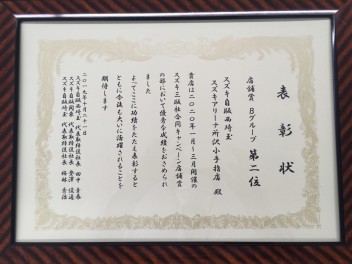 表彰状
店舗賞 Bグループ 第二位
スズキ自販西埼玉
スズキアリーナ所沢小手指店 殿
貴店は二〇二〇年一月～三月開催の
スズキ三販社合同キャンペーン店舗賞
の部において優秀な成績をおさめられ
ました
よってここに功績をたたえ表彰すると
ともに今後も大いに活躍されることを
期待します
スズキ自販西埼玉 代表取締役社長 田中
スズキ自販関東 代表取締役社長
スズキ自販埼玉 代表取締役社長